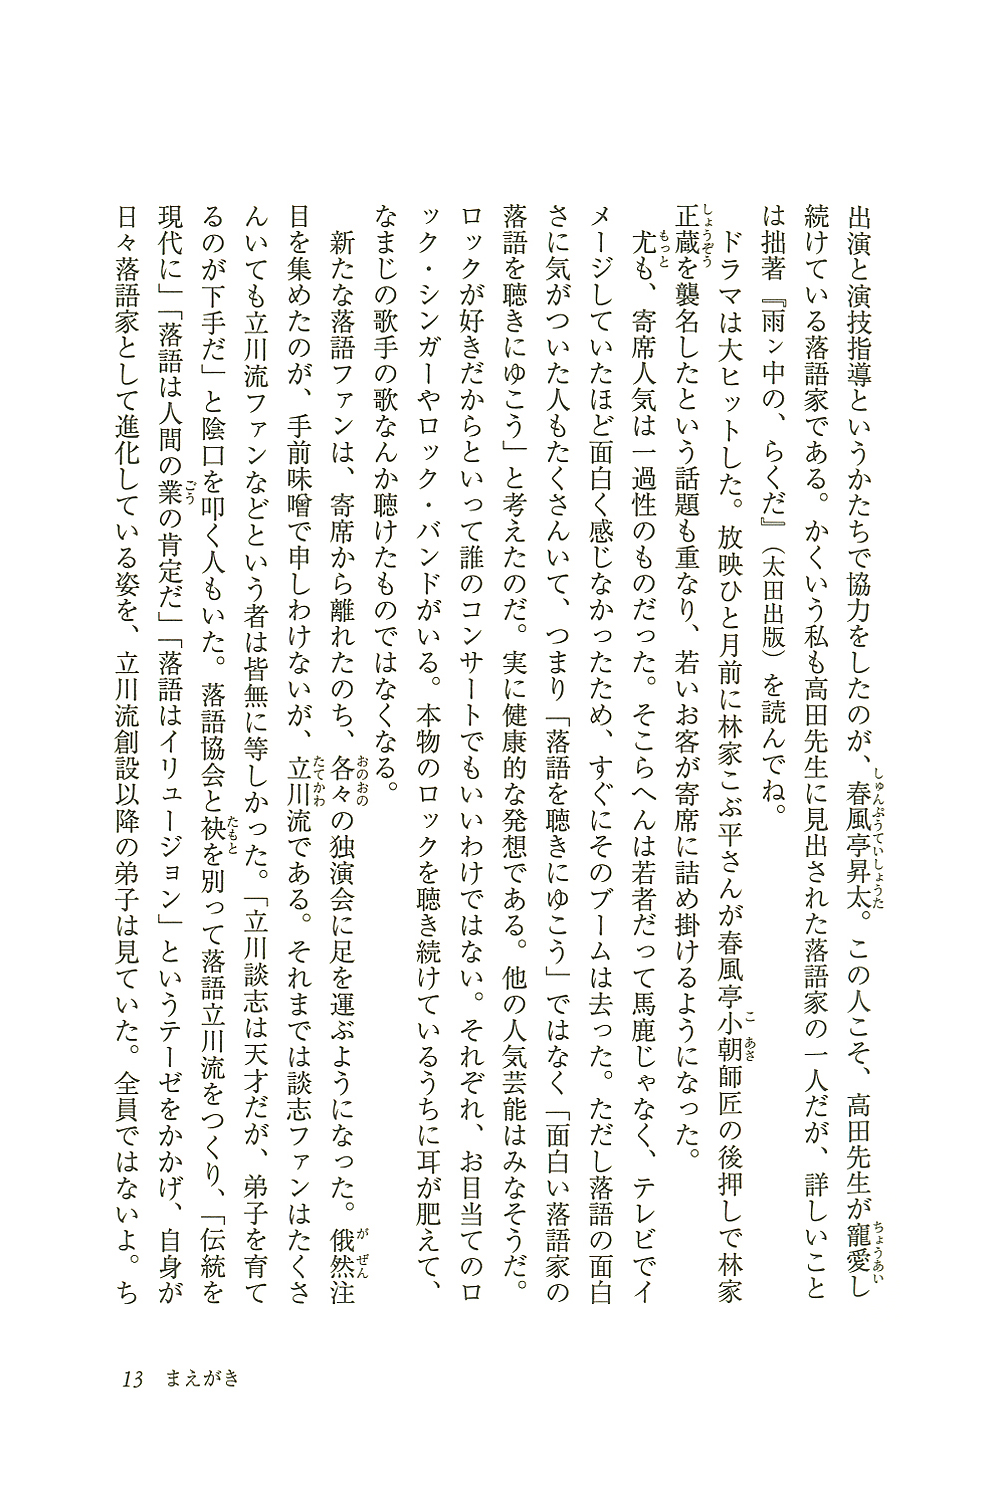 出演と演技指導というかたちで協力をしたのが、春風亭昇太。この人こそ、高田先生が寵愛し
続けている落語家である。かくいう私も高田先生に見出された落語家の一人だが、詳しいこと
は拙著『雨ン中の、らくだ』（太田出版）を読んでね。
ドラマは大ヒットした。放映ひと月前に林家こぶ平さんが春風亭小朝師匠の後押しで林家
正蔵を襲名したという話題も重なり、若いお客が寄席に詰め掛けるようになった。
尤も、寄席人気は一過性のものだった。そこらへんは若者だって馬鹿じゃなく、テレビでイ
メージしていたほど面白く感じなかったため、すぐにそのブームは去った。ただし落語の面白
さに気がついた人もたくさんいて、つまり「落語を聴きにゆこう」ではなく「面白い落語家の
落語を聴きにゆこう」と考えたのだ。実に健康的な発想である。他の人気芸能はみなそうだ。
ロックが好きだからといって誰のコンサートでもいいわけではない。それぞれ、お目当てのロ
ック・シンガーやロック・バンドがいる。本物のロックを聴き続けているうちに耳が肥えて、
なまじの歌手の歌なんか聴けたものではなくなる。
新たな落語ファンは、寄席から離れたのち、各々の独演会に足を運ぶようになった。俄然注
目を集めたのが、手前味噌で申しわけないが、立川流である。それまでは談志ファンはたくさ
んいても立川流ファンなどという者は皆無に等しかった。「立川談志は天才だが、弟子を育て
るのが下手だ」と陰口を叩く人もいた。落語協会と袂を別って落語立川流をつくり、「伝統を
現代に」「落語は人間の業の肯定だ」「落語はイリュージョン」というテーゼをかかげ、自身が
日々落語家として進化している姿を、立川流創設以降の弟子は見ていた。全員ではないよ。ち
13 まえがき